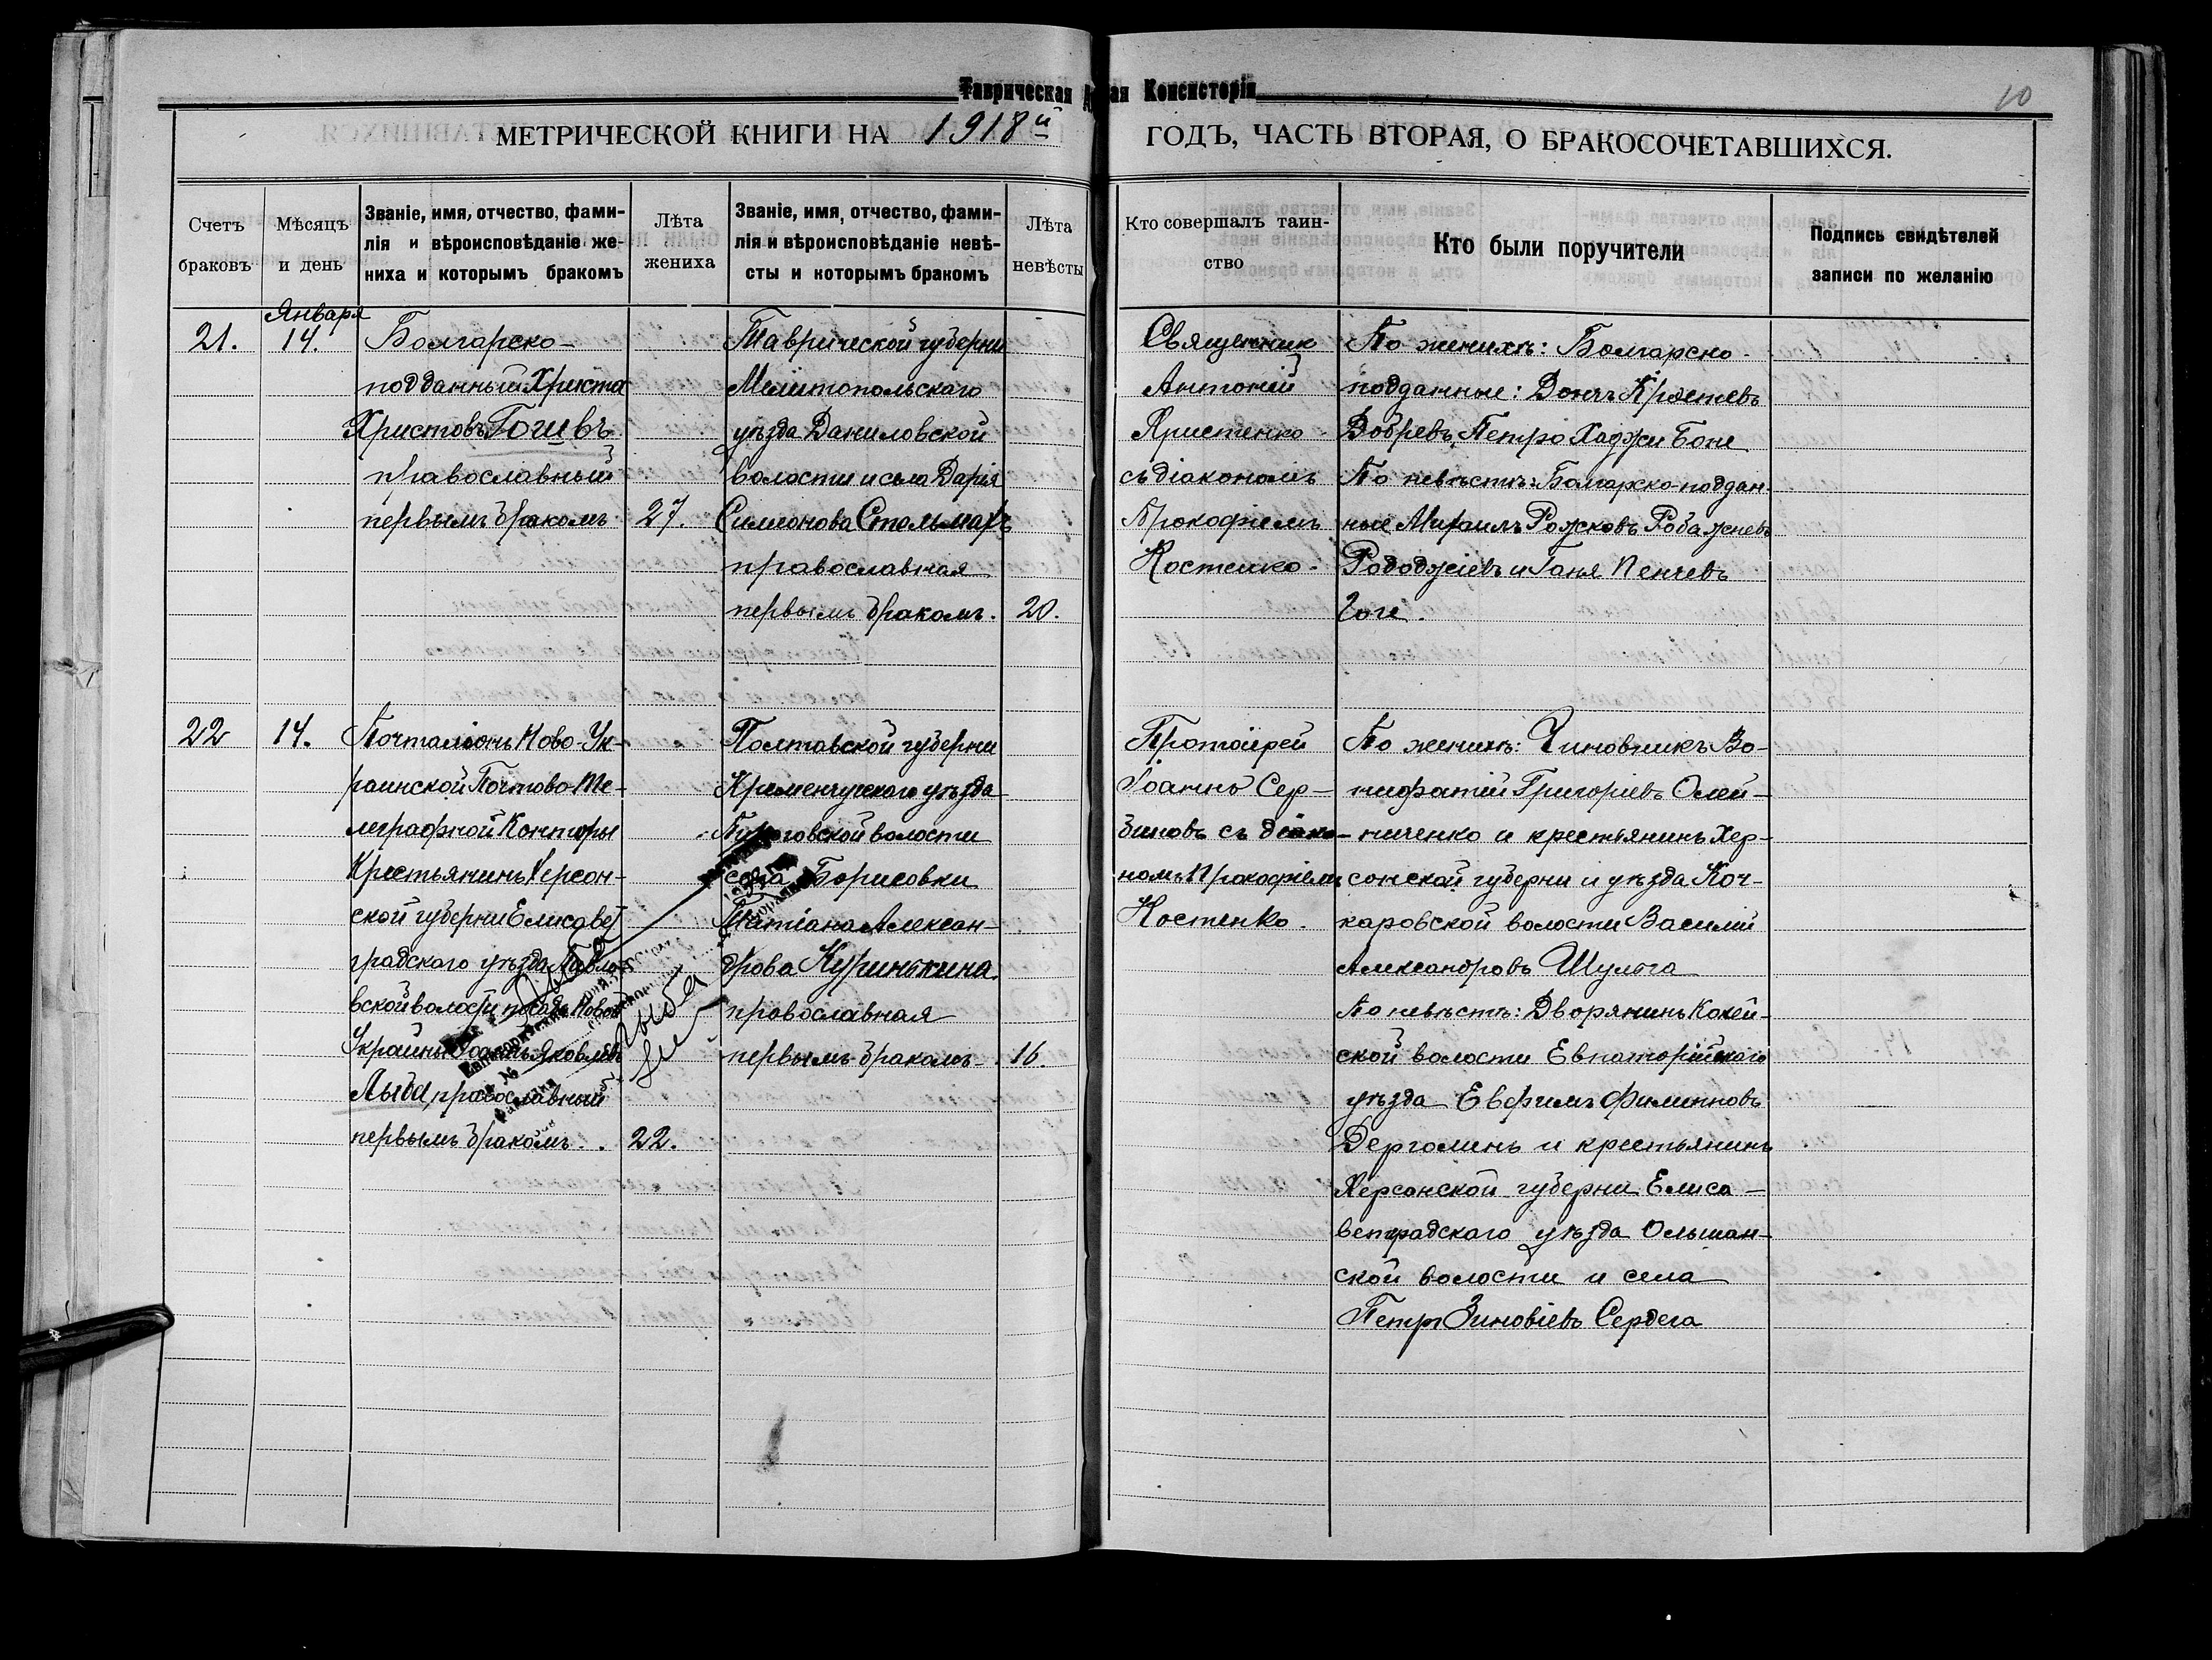 Таврическая ая Консисторія
10
МЕТРИЧЕСКОЙ КНИГИ НА 1918й ГОДЪ, ЧАСТЬ ВТОРАЯ, О БРАКОСОЧЕТАВШИХСЯ.
Счетъ
браковъ
Мѣсяцъ
и день
Званіе, имя, отчество, фами-
лія и вѣроисповѣданіе же-
ниха и которымъ бракомъ
Лѣта
жениха
Званіе, имя, отчество, фами-
лія и вѣроисповѣданіе невѣ-
сты и которымъ бракомъ
Лѣта
невѣсты
Кто совершалъ таин-
ство
Кто были поручители
Подпись свидѣтелей
записи по желанію
21.
Января
14.
Болгарско-
подданный Христа
Христовъ
православный
первымъ бракомъ
27.
Таврической губерніи
Мелитопольскаго
уѣзда Даниловской
волости и села Дарія
Симеонова Стельмахъ
православная
первымъ бракомъ.
20.
Священник
Антоній
Аристенко
съ діакономъ
Прокофіемъ
Костенко.
По женихѣ: Болгарско-
подданные: Дончъ Крѣстевъ
Добревъ, Петро Хаджи Боне
По невѣстѣ: Болгарско-поддан-
ные Михаилъ Рожсковъ
и Ганя Пенчевъ
Гоге.
22
14.
Почталіонъ Ново-Ук-
раинской Почтово-Те-
леграфной Конторы
Крестьянинъ Херсон-
ской губерніи Елисавет
градского уѣзда Павло
вской волости посада Новой
Украины Іоаннъ Яковлевъ
Лыба, православный
первымъ бракомъ.
22.
Полтавской губерніи
Кременчугскаго уѣзда
волости
села Борисовки
Татіана Алексан-
дрова Куринькина
православная
первымъ бракомъ.
16.
Протоіерей
Іоаннъ Сер-
биновъ съ діако-
номъ Прокофіемъ
Костенко.
По женихѣ: Чиновникъ Во-
нифатій Григоріевъ Олей-
ниченко и крестьянинъ Хер-
сонской губерніи и уѣзда Коч-
каровской волости Василій
Александровъ Шульга
По невѣстѣ: Дворянинъ Кокей-
ской волости Евпаторійскаго
уѣзда Евфимъ Филипповъ
Дерголинъ и крестьянинъ
Херсонской губерніи Елиса-
ветградскаго уѣзда Ольшан-
ской волости и села
Петр Зиновіевъ Сердега
Лыба